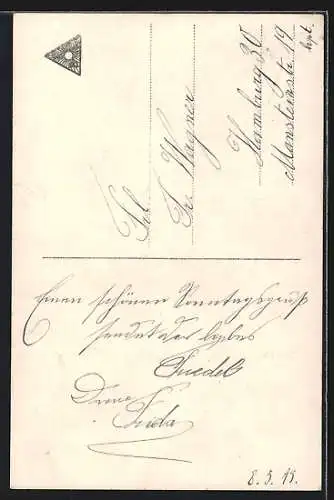 Frl.
Fr. Wagner
Hamburg 30
Mansteinstr 19
hpt.
Einen schönen Sonntagsgruß
sendet
Friedel
Frida
8.3.15.